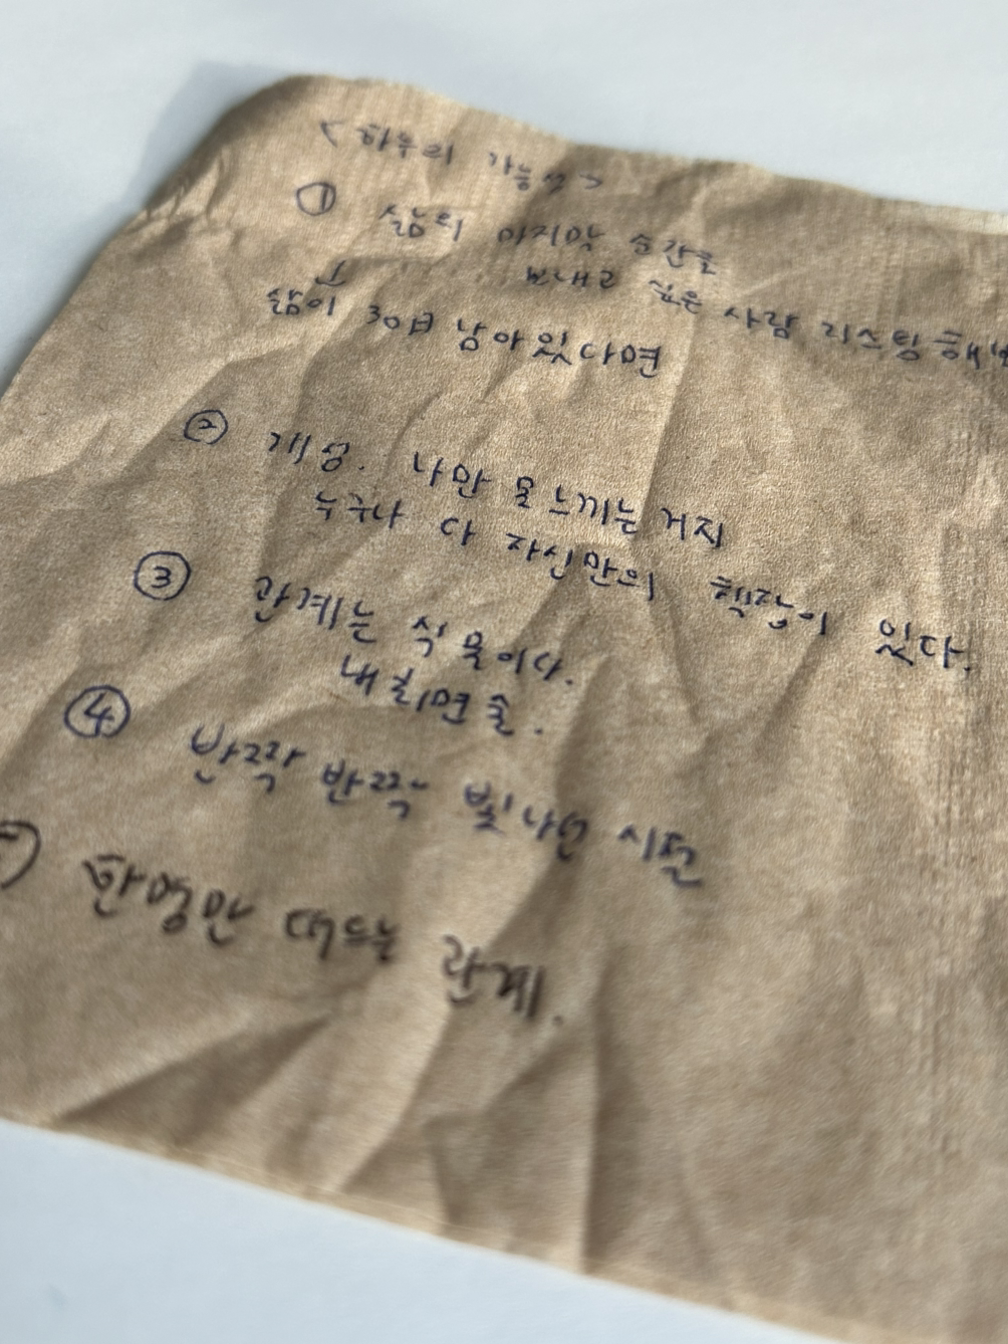 <하루의 가능성>
① 삶의 마지막 순간을
보내고 싶은 사람 리스팅 해보
↑
삶이 30일 남아있다면
② 개성. 나만 못 느끼는거지
누구나 다 자신만의 색깔이 있다.
③ 관계는 식물이다.
내 킬미면 촐.
④ 반짝 반짝 빛나던 시절
한명만 떠드는 관계.